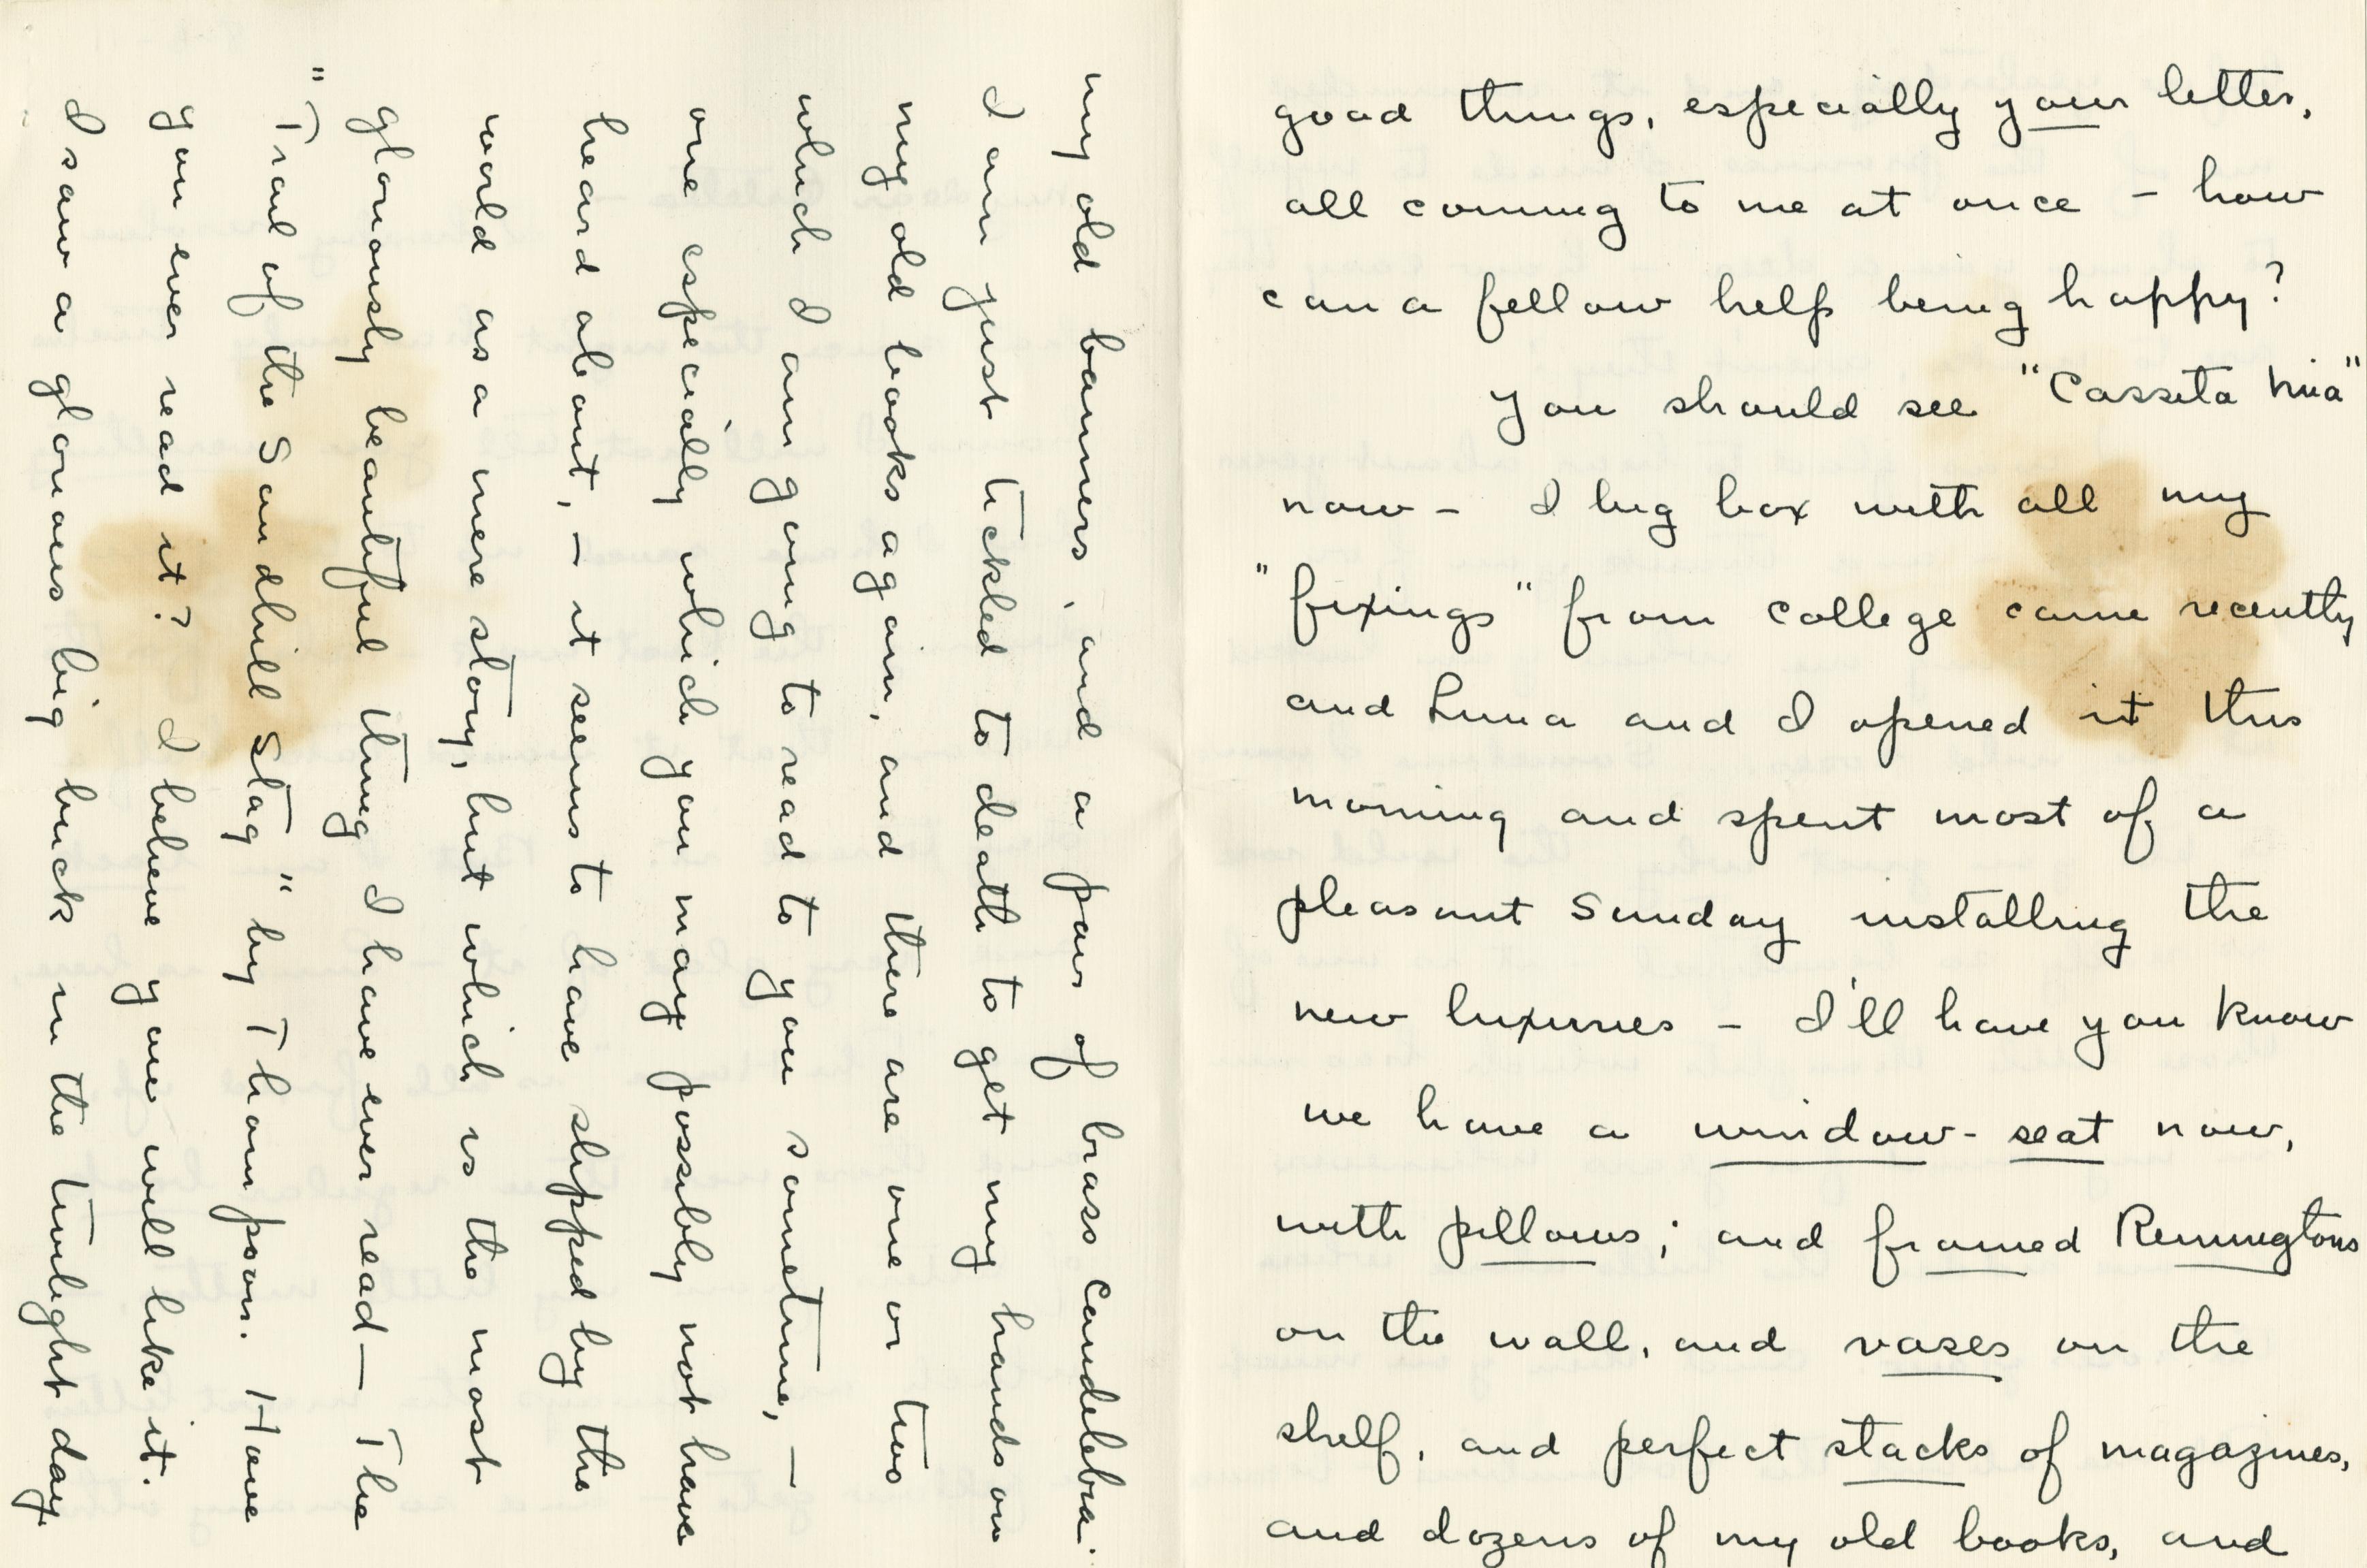 good things, especially your letter,
all coming to me at once – how
can a fellow help being happy?
You should see "Cassita Mia"
now – A big box with all my
"fixings" from college came recently
and Luna and I opened it this
morning and spent most of a
pleasant Sunday installing the
new luxuries – I'll have you know
we have a window-seat now,
with pillows; and framed Remingtons
on the wall, and vases on the
shelf, and perfect stacks of magazines,
and dozens of my old books, and
my old banners, and a pair of brass candelebra.
I am just tickled to death to get my hands on
my old books again, and there are one or two
which I am going to read to you sometime, –
one especially which you may possibly not have
heard about, – it seems to have slipped by the
world as a mere story, but which is the most
gloriously beautiful thing I have ever read – The
"Trail of the Sandhill Stag" by Thompson. Have
you ever read it? I believe you will like it.
I saw a glorious big buck in the twilight day